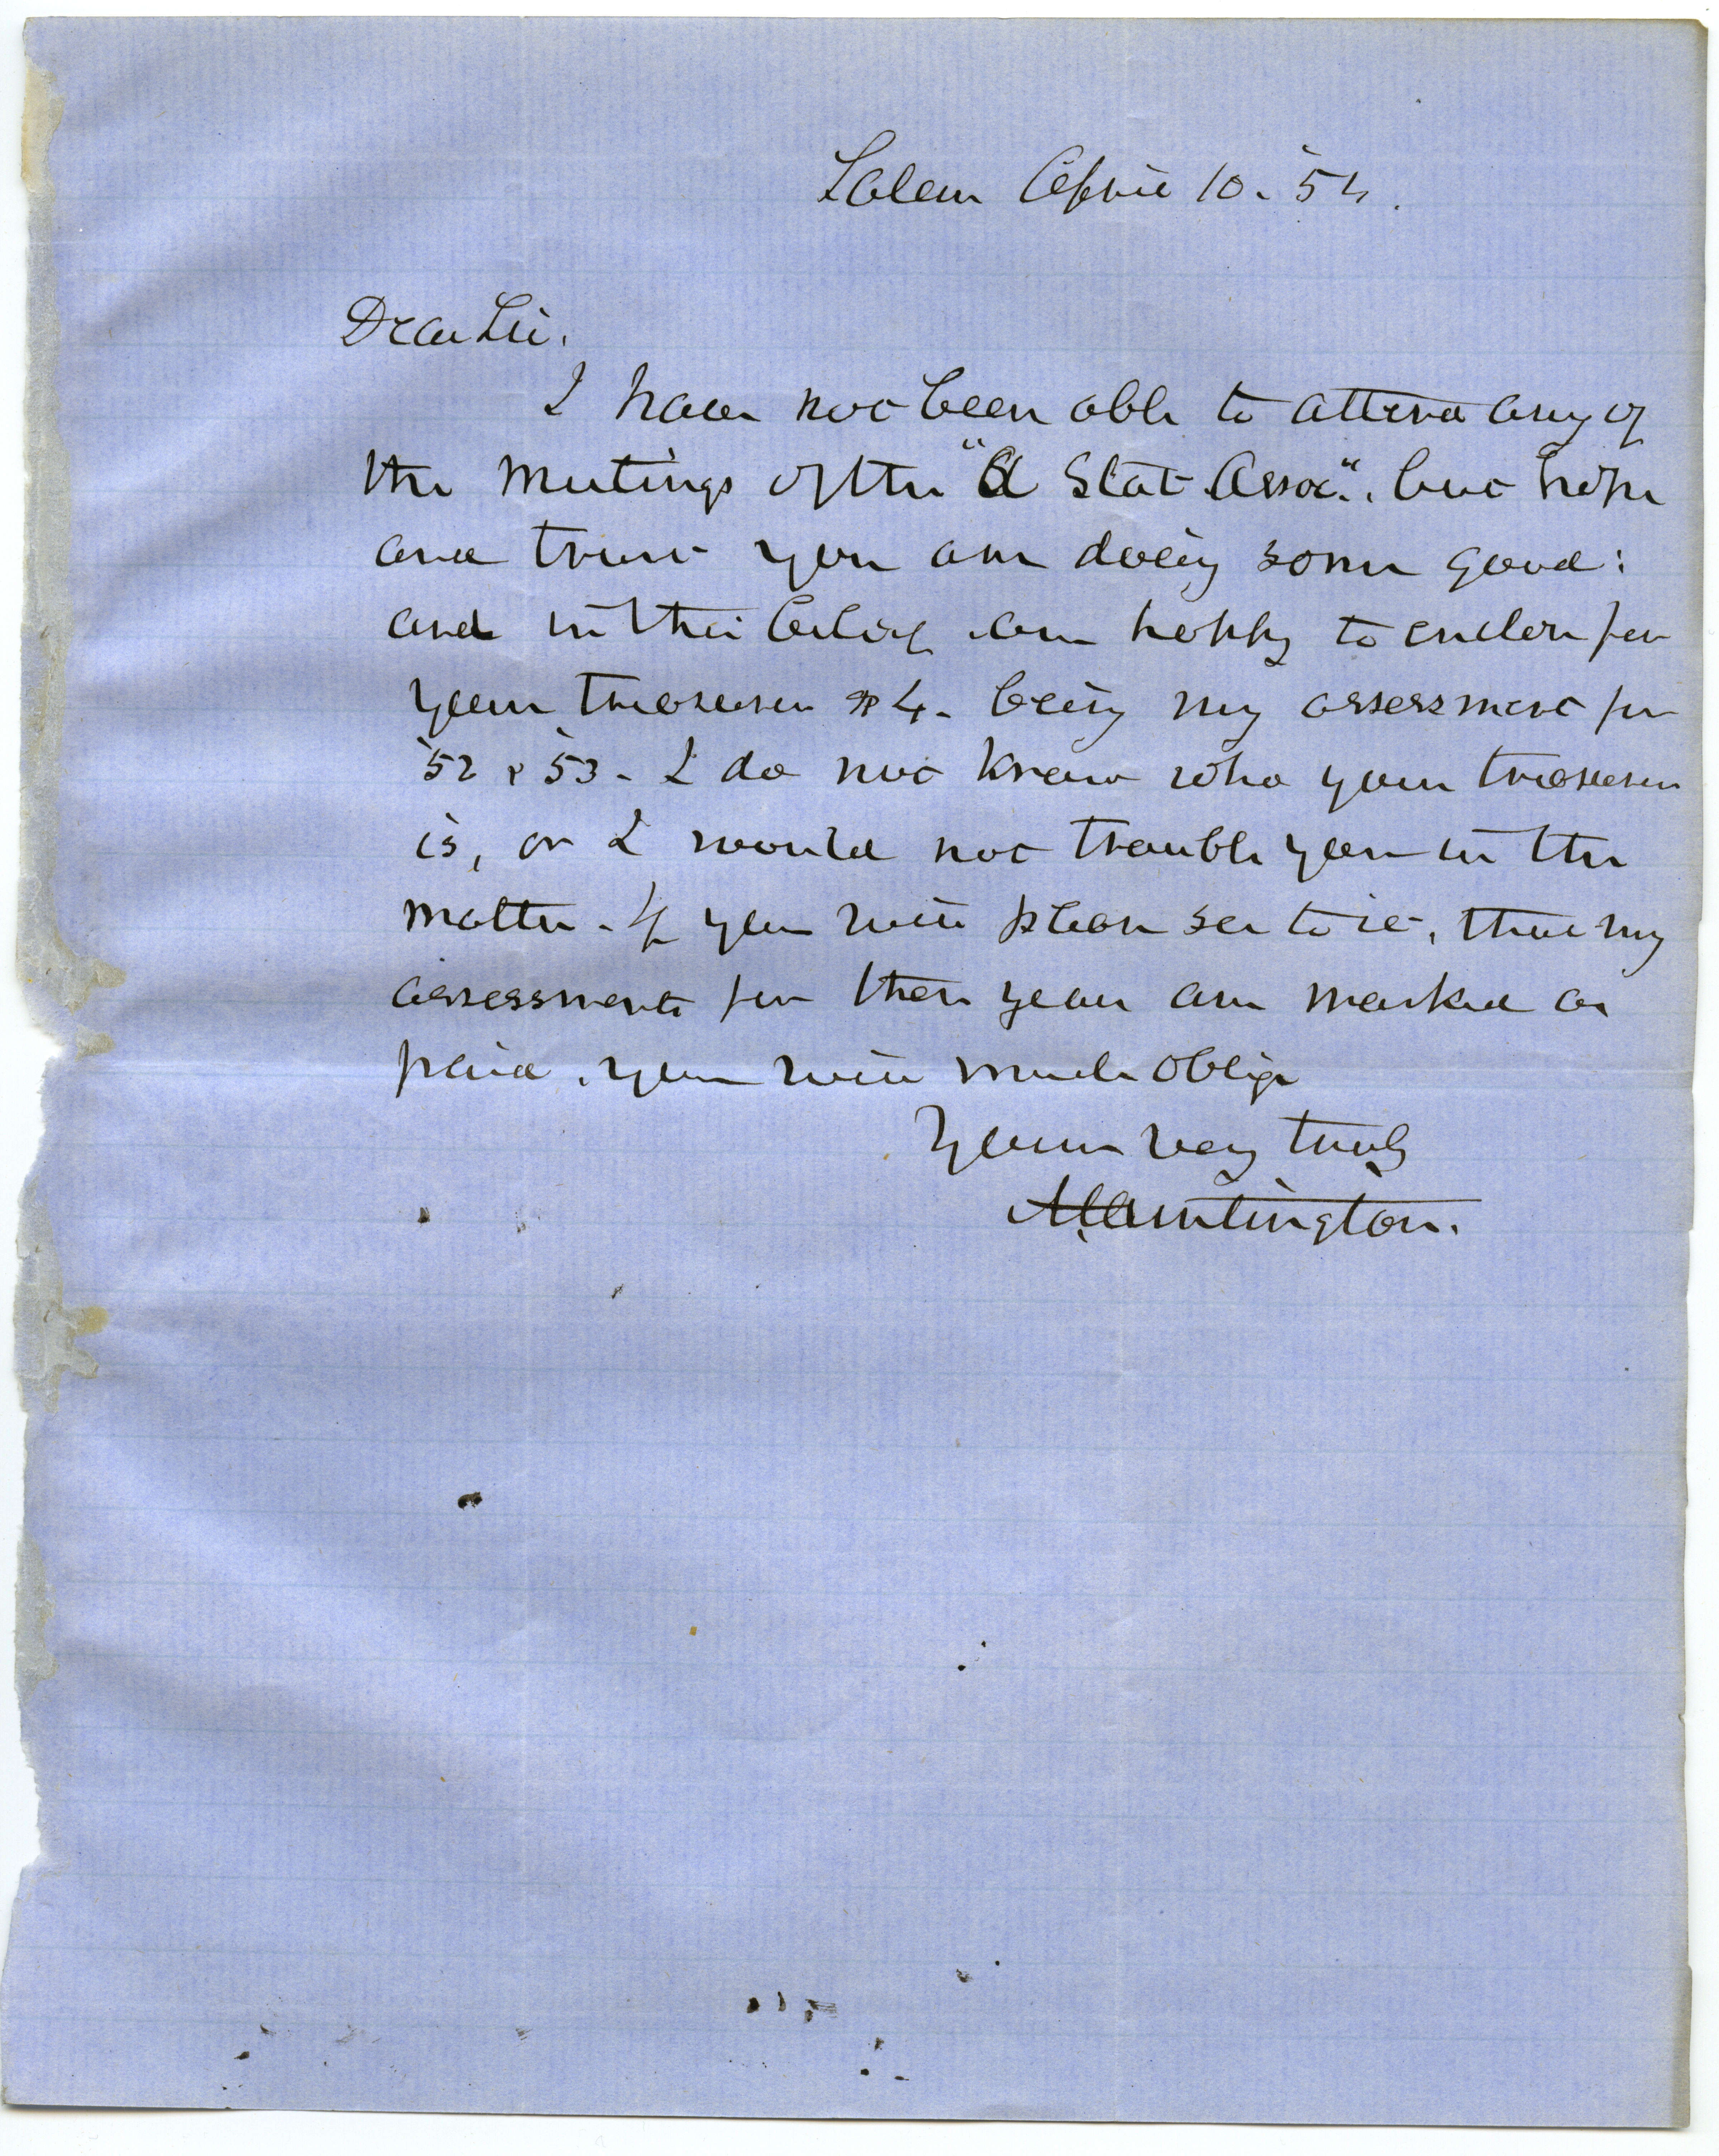 Salem April 10. '54.
Dear Sir.
I have not been able to attend any of
the meetings of the "A Stat. Assoc.", but hope
and trust you are doing some good:
and in this belief am happy to enclose for
your treasurer $4. being my assessment for
'52 & '53. I do not know who your treasurer
is, or I would not trouble you in the
matter. If you will please see to it, that my
assessments for these years are marked as
paid, you will much oblige
Yours very truly
A. Huntington.